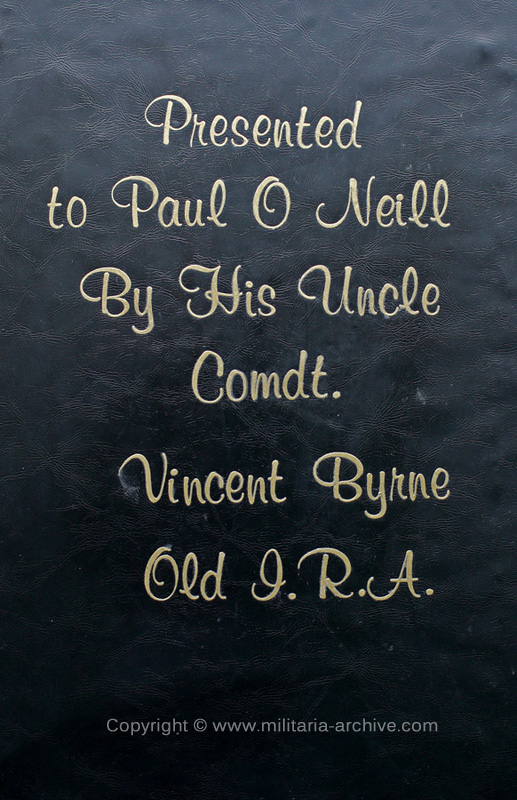 Presented
to Paul O Neill
By His Uncle
Comdt.
Vincent Byrne
Old I.R.A.
Copyright © www.militaria-archive.com